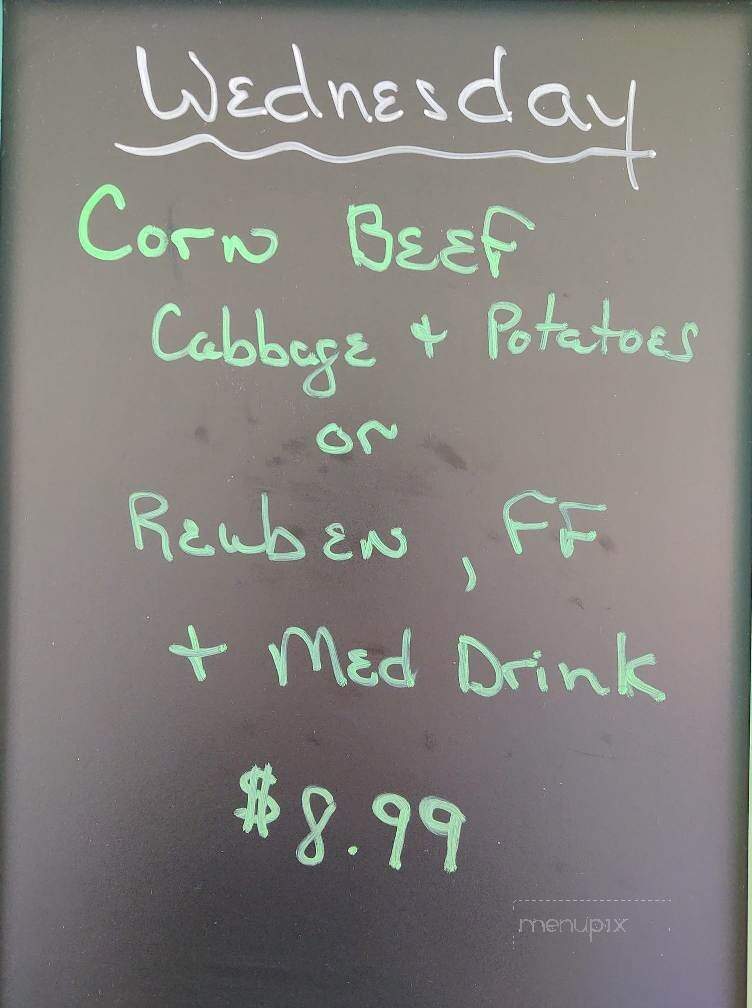 Wednesday
Corn Beef
Cabbage + Potatoes
or
Reuben, FF
+ Med Drink
$8.99
menupix